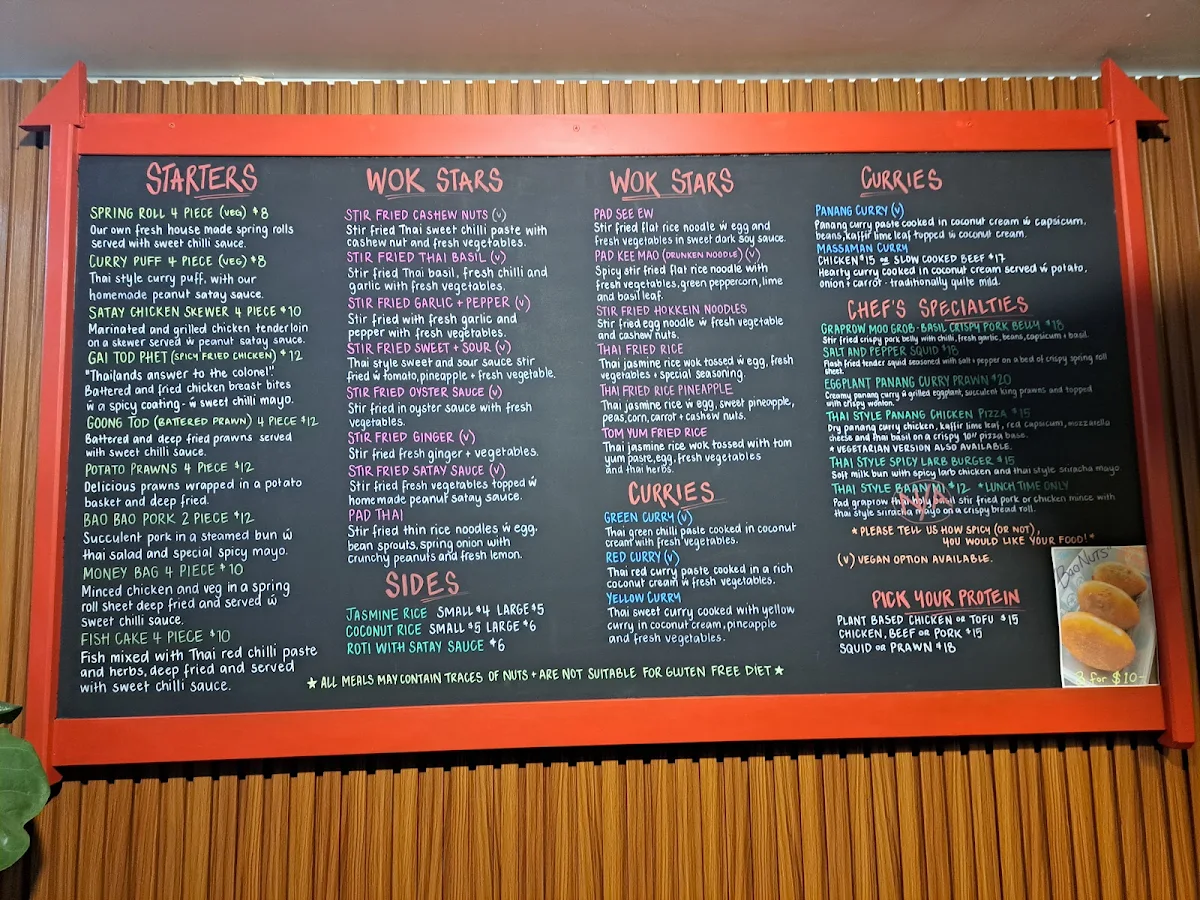 STARTERS
SPRING ROLL 4 PIECE (VEG) $8
Our own fresh house made spring rolls
served with sweet chilli sauce.
CURRY PUFF 4 PIECE (VEG) $8
Thai style curry puff, with our
homemade peanut satay sauce.
SATAY CHICKEN SKEWER 4 PIECE $10
Marinated and grilled chicken tenderloin
on a skewer served ẃ peanut satay sauce.
GAI TOD PHET (SPICY FRIED CHICKEN) $12
"Thailands answer to the colonel".
Battered and fried chicken breast bites
ẃ a spicy coating - ẃ sweet chilli mayo.
GOONG TOD (BATTERED PRAWN) 4 PIECE $12
Battered and deep fried prawns served
with sweet chilli sauce.
POTATO PRAWNS 4 PIECE $12
Delicious prawns wrapped in a potato
basket and deep fried.
BAO BAO PORK 2 PIECE $12
Succulent pork in a steamed bun ẃ
thai salad and special spicy mayo.
MONEY BAG 4 PIECE $10
Minced chicken and veg in a spring
roll sheet deep fried and served ẃ
sweet chilli sauce.
FISH CAKE 4 PIECE $10
Fish mixed with Thai red chilli paste
and herbs, deep fried and served
with sweet chilli sauce.
WOK STARS
STIR FRIED CASHEW NUTS (V)
Stir fried Thai sweet chilli paste with
cashew nut and fresh vegetables.
STIR FRIED THAI BASIL (V)
Stir fried Thai basil, fresh chilli and
garlic with fresh vegetables.
STIR FRIED GARLIC + PEPPER (V)
Stir fried with fresh garlic and
pepper with fresh vegetables.
STIR FRIED SWEET + SOUR (V)
Thai style sweet and sour sauce stir
fried ẃ tomato, pineapple + fresh vegetable.
STIR FRIED OYSTER SAUCE (V)
Stir fried in oyster sauce with fresh
vegetables.
STIR FRIED GINGER (V)
Stir fried fresh ginger + vegetables.
STIR FRIED SATAY SAUCE (V)
Stir fried fresh vegetables topped ẃ
homemade peanut satay sauce.
PAD THAI
Stir fried thin rice noodles ẃ egg,
bean sprouts, spring onion with
crunchy peanuts and fresh lemon.
SIDES
JASMINE RICE SMALL $4 LARGE $5
COCONUT RICE SMALL $5 LARGE $6
ROTI WITH SATAY SAUCE $6
WOK STARS
PAD SEE EW
Stir fried flat rice noodle ẃ egg and
fresh vegetables in sweet dark soy sauce.
PAD KEE MAO (DRUNKEN NOODLE) (V)
Spicy stir fried flat rice noodle with
fresh vegetables, green peppercorn, lime
and basil leaf.
STIR FRIED HOKKEIN NOODLES
Stir fried egg noodle ẃ fresh vegetable
and cashew nuts.
THAI FRIED RICE
Thai jasmine rice wok tossed ẃ egg, fresh
vegetables + special seasoning.
THAI FRIED RICE PINEAPPLE
Thai jasmine rice ẃ egg, sweet pineapple,
peas, corn, carrot + cashew nuts.
TOM YUM FRIED RICE
Thai jasmine rice wok tossed with tom
yum paste, egg, fresh vegetables
and thai herbs.
CURRIES
GREEN CURRY (V)
Thai green chilli paste cooked in coconut
cream with fresh vegetables.
RED CURRY (V)
Thai red curry paste cooked in a rich
coconut cream ẃ fresh vegetables.
YELLOW CURRY
Thai sweet curry cooked with yellow
curry in coconut cream, pineapple
and fresh vegetables.
CURRIES
PANANG CURRY (V)
Panang curry paste cooked in coconut cream ẃ capsicum,
beans, kaffir lime leaf topped ẃ coconut cream.
MASSAMAN CURRY
CHICKEN $15 OR SLOW COOKED BEEF $17
Hearty curry cooked in coconut cream served ẃ potato,
onion + carrot - traditionally quite mild.
CHEF'S SPECIALTIES
GRAPROW MOO GROB - BASIL CRISPY PORK BELLY $18
Stir fried crispy pork belly with chilli, fresh garlic, beans, capsicum + basil.
SALT AND PEPPER SQUID $18
Flash fried tender squid seasoned with salt + pepper on a bed of crispy spring roll
sheet.
EGGPLANT PANANG CURRY PRAWN $20
Creamy panang curry ẃ grilled eggplant, succulent king prawns and topped
with crispy wonton.
THAI STYLE PANANG CHICKEN PIZZA $15
Dry panang curry chicken, kaffir lime leaf, red capsicum, mozzarella
cheese and thai basil on a crispy 10" pizza base.
* VEGETARIAN VERSION ALSO AVAILABLE.
THAI STYLE SPICY LARB BURGER $15
Soft milk bun with spicy larb chicken and thai style sriracha mayo.
THAI STYLE BAAN MI $12 *LUNCH TIME ONLY
N/A
Pad graprow thai holy basil stir fried pork or chicken mince with
thai style sriracha mayo on a crispy bread roll.
*PLEASE TELL US HOW SPICY (OR NOT),
YOU WOULD LIKE YOUR FOOD!*
(V) VEGAN OPTION AVAILABLE.
PICK YOUR PROTEIN
PLANT BASED CHICKEN OR TOFU $15
CHICKEN, BEEF OR PORK $15
SQUID OR PRAWN $18
"BaoNUTS"
3 for $10-
★ ALL MEALS MAY CONTAIN TRACES OF NUTS + ARE NOT SUITABLE FOR GLUTEN FREE DIET ★